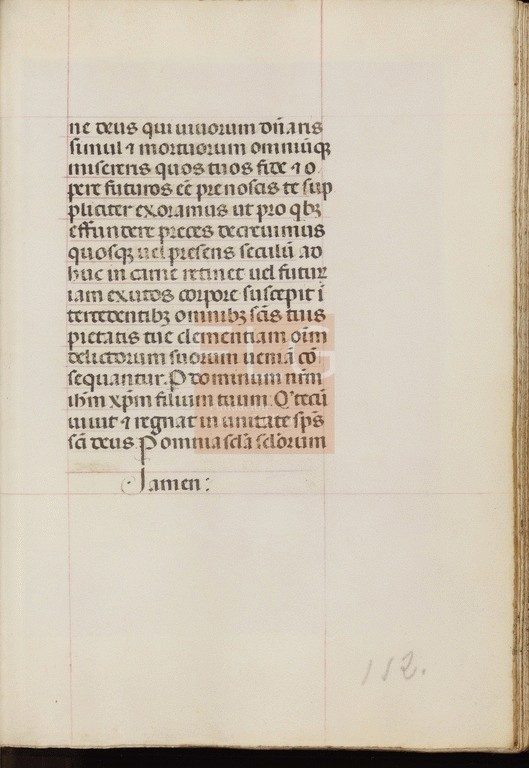 ne deus qui viuorum dn̄aris
simul ⁊ mortuorum omniūq̄
misereris quos tuos fide ⁊ o
pere futuros eē prenoscis te sup
pliciter exoramus ut pro qbꝫ
effundere preces decreuimus
quosqꝫ uel presens seculū ad
huc in carne retinet uel futuꝝ
iam exutos corpore suscepit ī
tercedentibꝫ omnibꝫ sc̄is tuis
pietatis tue clementiam oīm
delictorum suorum ueniā cō
sequantur. P dominum nr̄m
ih̄m xp̄m filium tuum. Q' tecū
uiuit ⁊ regnat in unitate sp̄s
sc̄i deus P omnia sc̄la sc̄lorum
amen:
FLG
112.